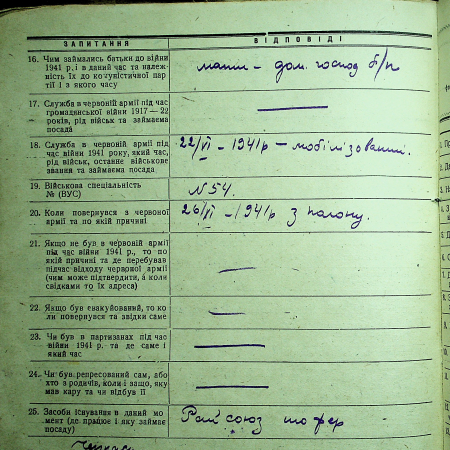 ЗАПИТАННЯ ВІДПОВІДІ
16. Чим займались батьки до війни
1941 р. і в даний час та належ-
ність їх до комуністичної пар-
тії і з якого часу
мати – дом. господ б/п
17. Служба в червоній армії під час
громадянської війни 1917—22
років, рід військ та займаєма
посада
18. Служба в червоній армії під
час війни 1941 року, який час,
рід військ, останнє військове
звання та займаєма посада
22/VI – 1941 р – мобілізований.
19. Військова спеціальність
№ (ВУС)
N 54.
20. Коли повернувся з червоної
армії та по якій причині
26/VI – 1941 р з полону.
21. Якщо не був в червоній армії
під час війни 1941 р., то по
якій причині та де перебував
підчас відходу червоної армії
(чим може підтвердити, а коли
свідками то їх адреса)
22. Якщо був евакуйований, то ко
ли повернувся та звідки саме
23. Чи був в партизанах під час
війни 1941 р. та де саме і
який час
24. Чи був репресований сам, або
хто з родичів, коли і защо, яку
мав кару та чи відбув її
25. Засоби існування в даний мо
мент (де працює і яку займає
посаду)
Рай союз шофер